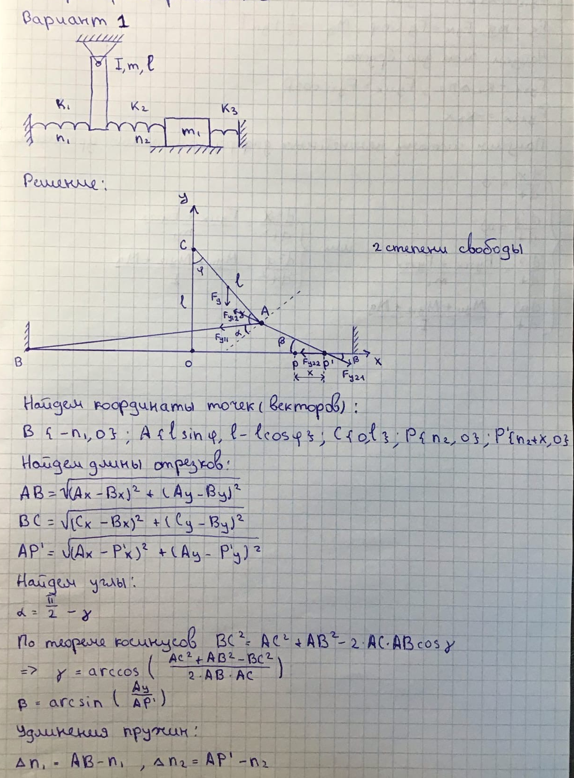 Вариант 1
I, m, l
K₁ K₂ K₃
n₁ n₂ m₁
Решение:
y
2 степени свободы
C
φ
l
l
Fg
A
Fy2
Fy1
α
β
B
O
P
Fy22
P'
B
x
x
Fy21
Найдем координаты точек (векторов):
B {-n₁, 0}; A {l sin φ, l - l cos φ}; C {0, l}; P {n₂, 0}; P' {n₂+x, 0}
Найдем длины отрезков:
AB = √(Ax - Bx)² + (Ay - By)²
BC = √(Cx - Bx)² + (Cy - By)²
AP' = √(Ax - P'x)² + (Ay - P'y)²
Найдем углы:
α = π/2 - γ
По теореме косинусов BC² = AC² + AB² - 2·AC·AB cos γ
=> γ = arccos (AC² + AB² - BC² / 2·AB·AC)
β = arcsin (Ay / AP')
Удлинения пружин:
Δn₁ = AB - n₁, Δn₂ = AP' - n₂